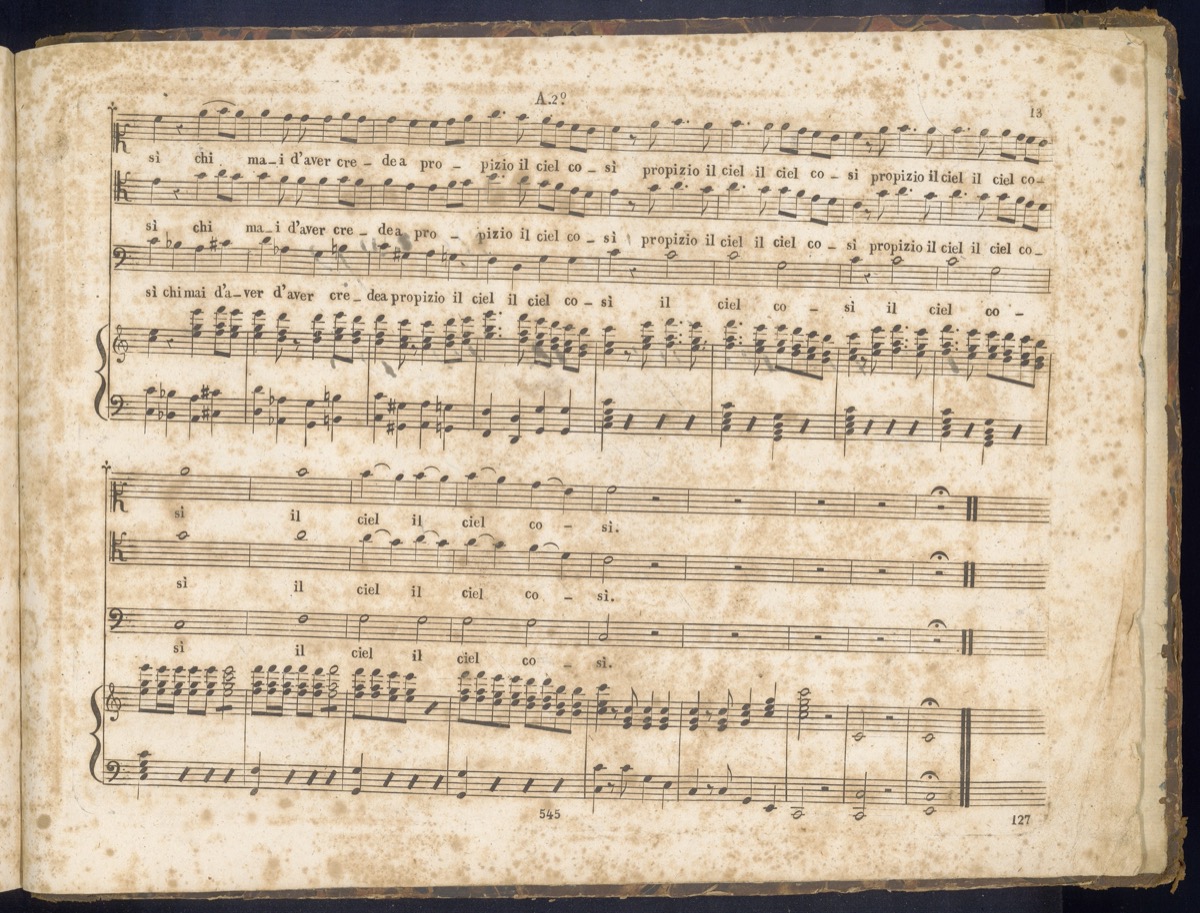 A.2º
13
sì chi ma_i d'aver cre_dea pro_pizio il ciel co_sì propizio il ciel il ciel co_sì propizio il ciel il ciel co_
sì chi ma_i d'aver cre_dea pro_pizio il ciel co_sì propizio il ciel il ciel co_sì propizio il ciel il ciel co_
sì chi mai d'a_ver d'aver cre_dea propizio il ciel il ciel co_sì il ciel co_sì il ciel co_
sì il ciel il ciel co_sì.
sì il ciel il ciel co_sì.
sì il ciel il ciel co_sì.
545
127